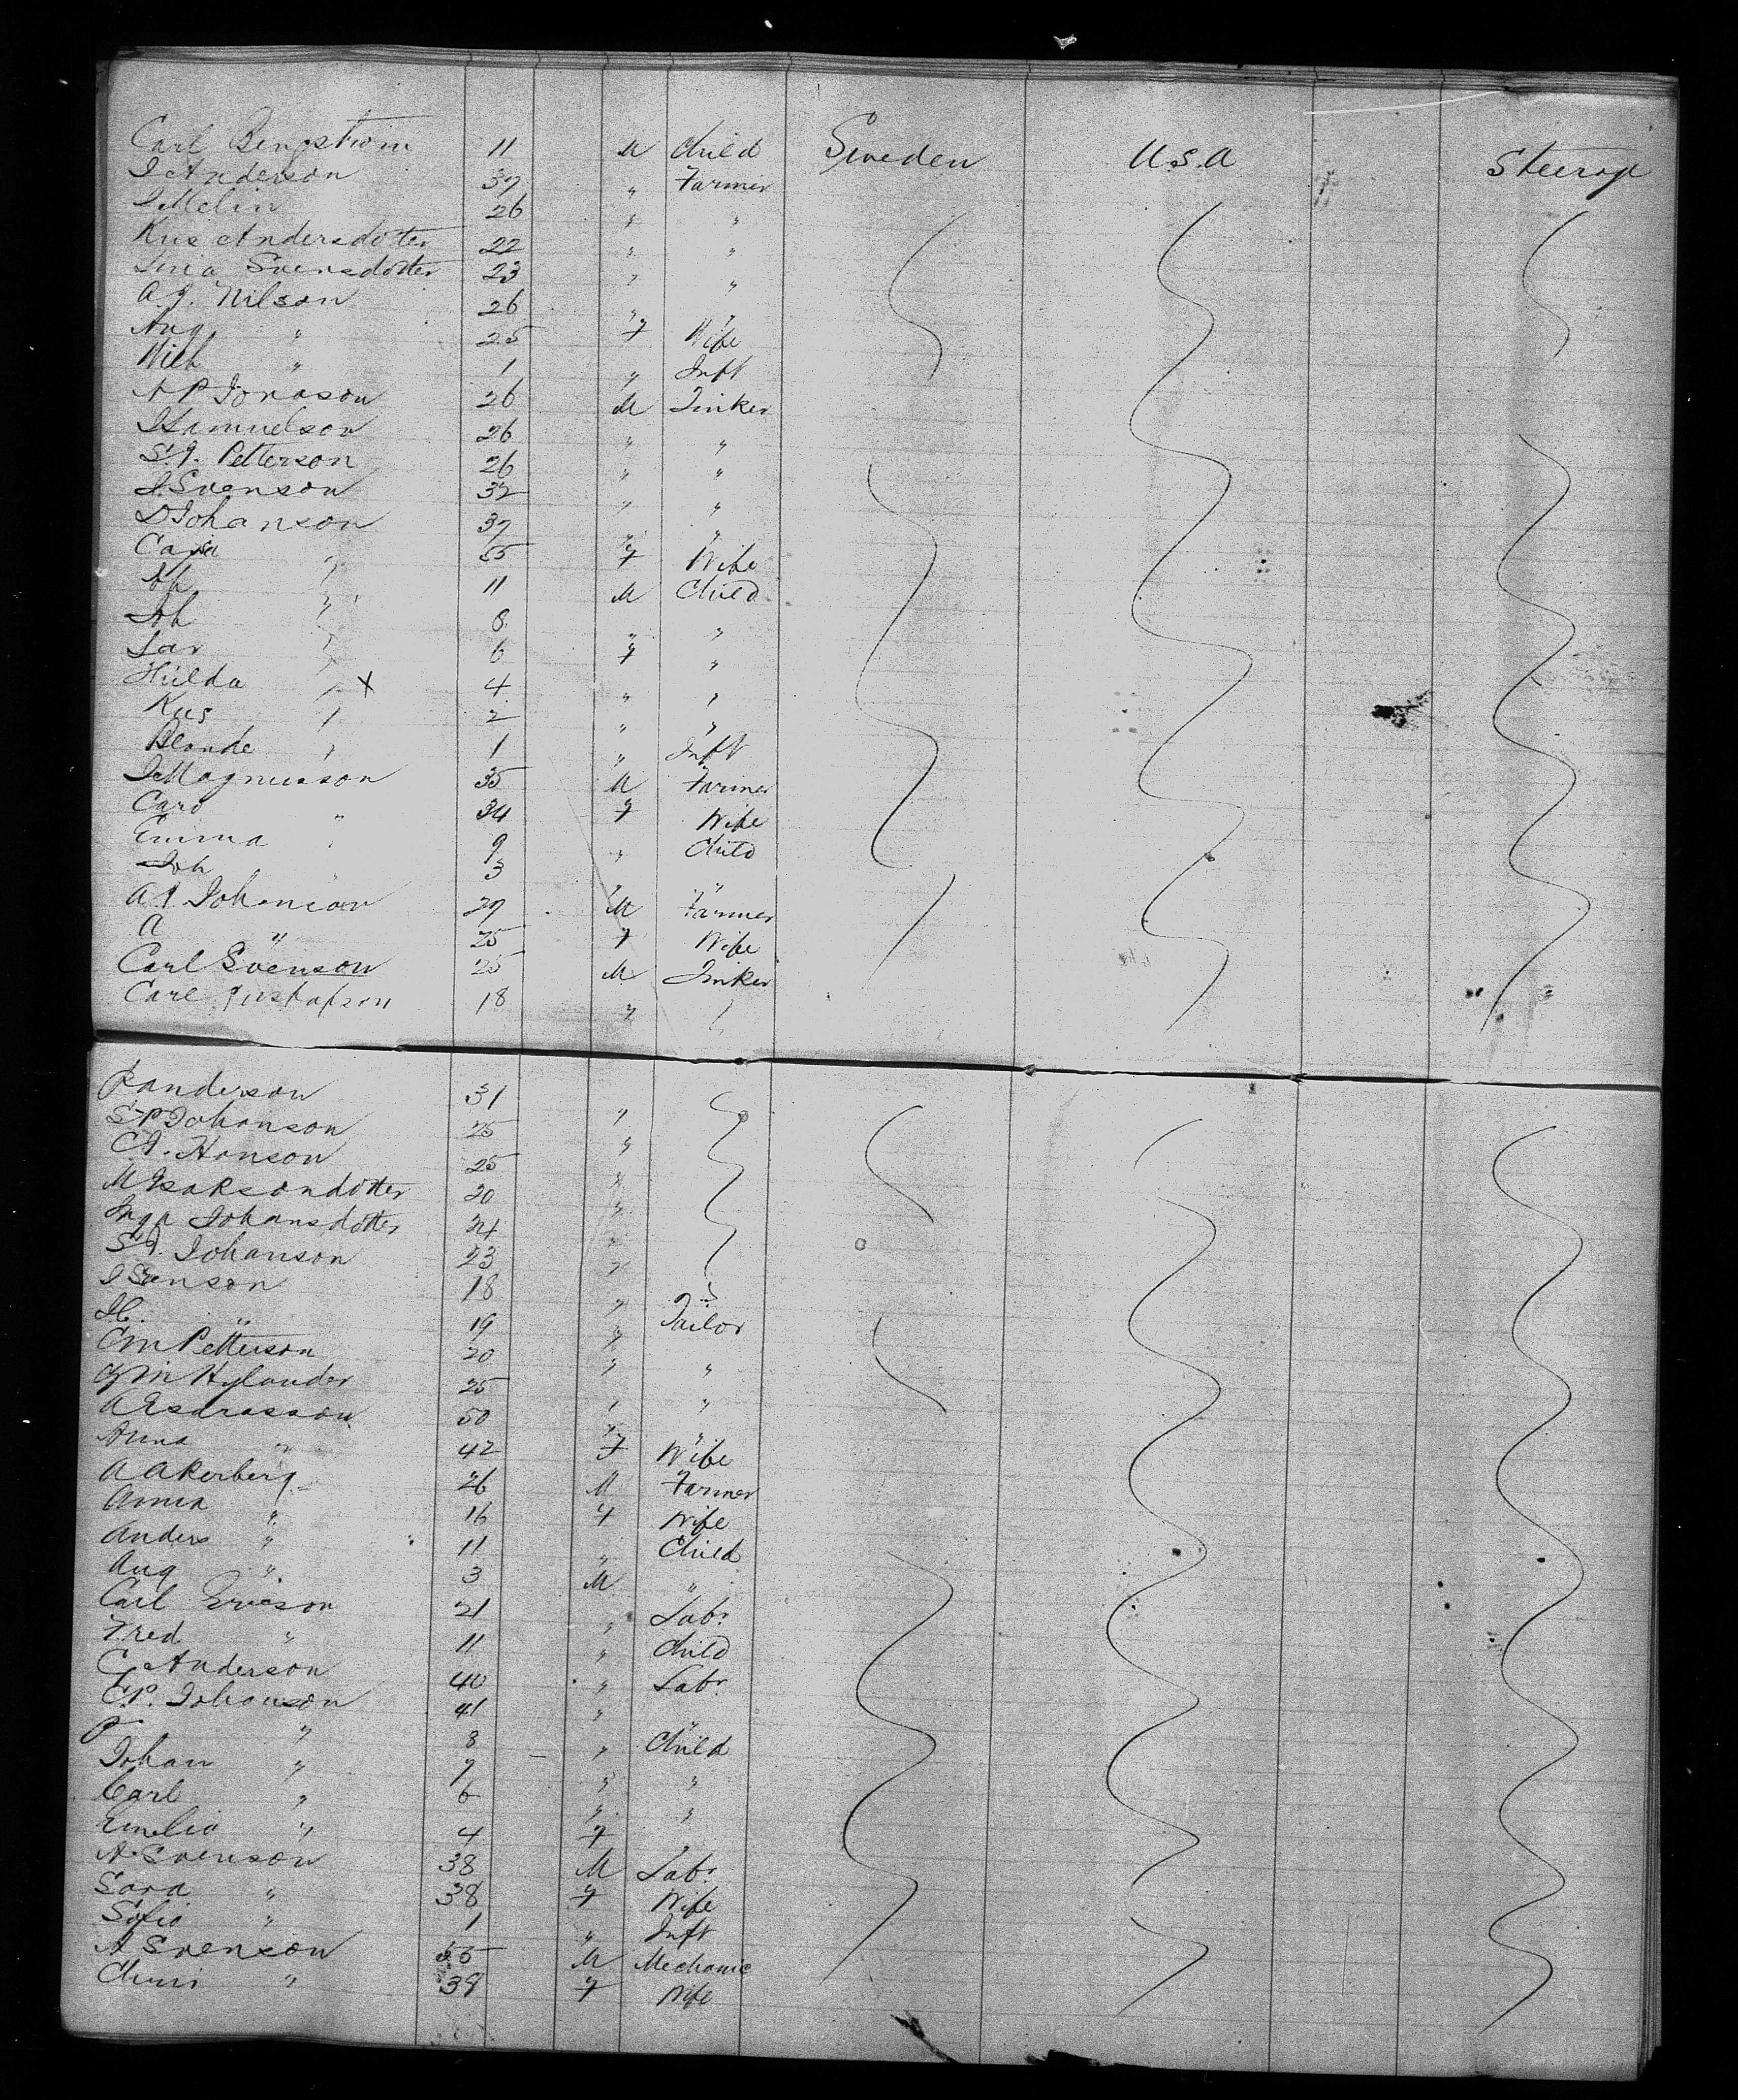 Carl Bengstrom 11 M Child Sweden U.S.A Steerage
J Anderson 37 " Farmer
J Melin 26 " "
Kus Andersdotter 22 " "
Lina Svensdotter 23 " "
A.J. Nilson 26 " "
Aug. " 25 F Wife
Wilh " 1 " Inft
A P Jonason 26 M Tinker
J Samuelson 26 " "
S.J. Petterson 26 " "
J. Svenson 32 " "
D Johanson 37 " "
Cajsa " 35 F Wife
" 11 M Child
Joh " 8 " "
Sar " 6 F "
Hilda " X 4 " "
Kus " 2 " "
Blonde " 1 " Inft
J Magnusson 35 M Farmer
Caro " 34 F Wife
Emma " 9 " Child
Joh " 3 " "
A P Johanson 27 M Farmer
A " 25 F Wife
Carl Svenson 25 M Tinker
Carl Gustafson 18 " "
P Anderson 31 "
S P Johanson 25 "
C A. Hanson 25 "
M Isaksondotter 20 "
Inga Johansdotter 24 "
S J. Johanson 23 "
J Svenson 18 "
" 19 " Tailor
C M Petterson 20 " "
G M Hylander 25 " "
A Esdrasson 50 " "
Anna " 42 F Wife
A Akerberg 26 M Farmer
Anna " 16 F Wife
Anders " 11 " Child
Aug " 3 M "
Carl Ericson 21 " Labr.
Fred " 11 " Child
C. Anderson 40 " Labr.
C.P. Johanson 41 " "
" 8 " Child
Johan " 7 " "
Carl " 6 " "
Emelia " 4 F "
A. Svenson 38 M Labr.
Sara " 38 F Wife
Sofia " 1 " Inft
A Svenson 35 M Mechanic
" 38 F Wife